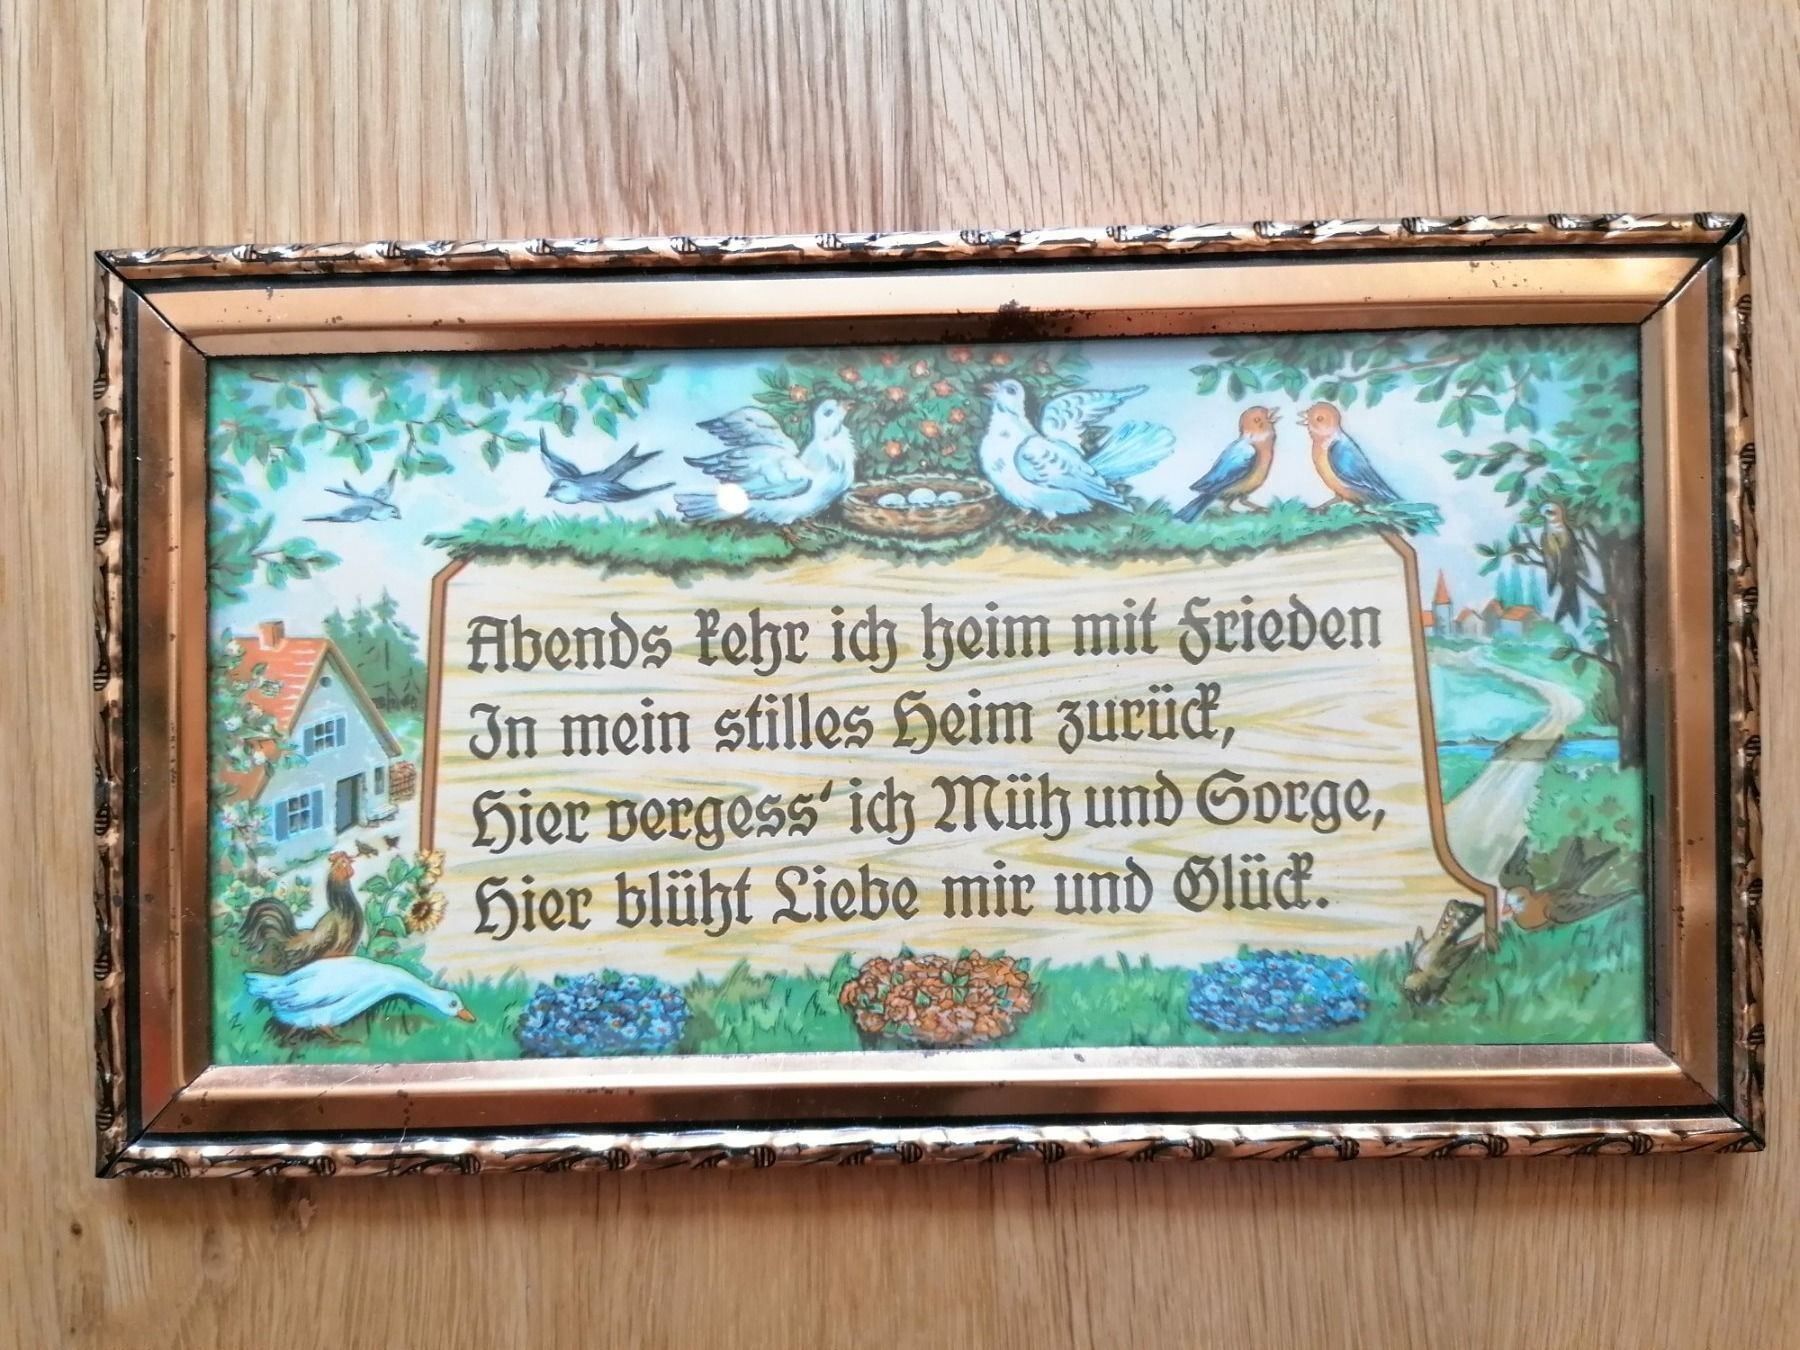 Abends kehr ich heim mit Frieden
In mein stilles Heim zurück,
Hier vergess' ich Müh und Sorge,
Hier blüht Liebe mir und Glück.